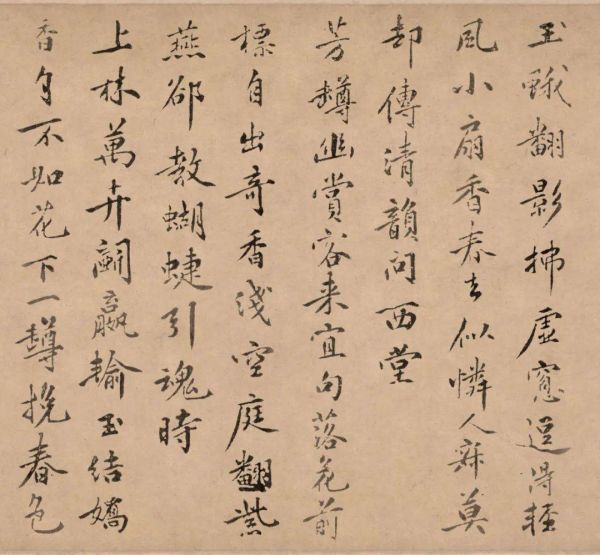 玉蛾翻影拂虛窓逗得輕
風小扇香春去似憐人寂莫
却傳清韻問西堂
芳罇幽賞客来宜句落花前
標自出奇香淺空庭翻紫
燕郤教蝴蝶引魂時
上林萬卉鬪贏輸玉結嬌
香自不如花下一罇挽春色